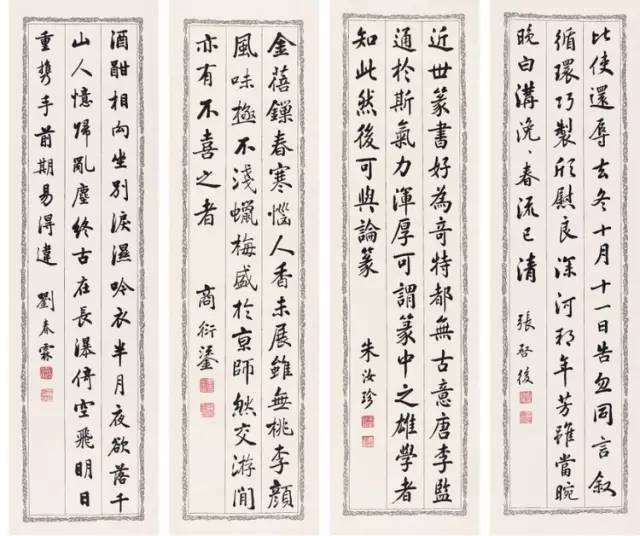 比使還辱去冬十月十一日告忽同言叙
循環巧製欣慰良深河朔年芳雖當晼
晚白溝浼〻春流已清
張啓後
近世篆書好為奇特都無古意唐李監
通於斯氣力渾厚可謂篆中之雄學者
知此然後可與論篆
朱汝珍
金蓓鏁春寒惱人香未展雖無桃李顏
風味極不淺蠟梅盛於京師然交游間
亦有不喜之者
商衍鎏
酒酣相向坐別淚濕吟衣半月夜欲落千
山人憶歸亂塵終古在長瀑倚空飛明日
重携手前期易得違
劉春霖